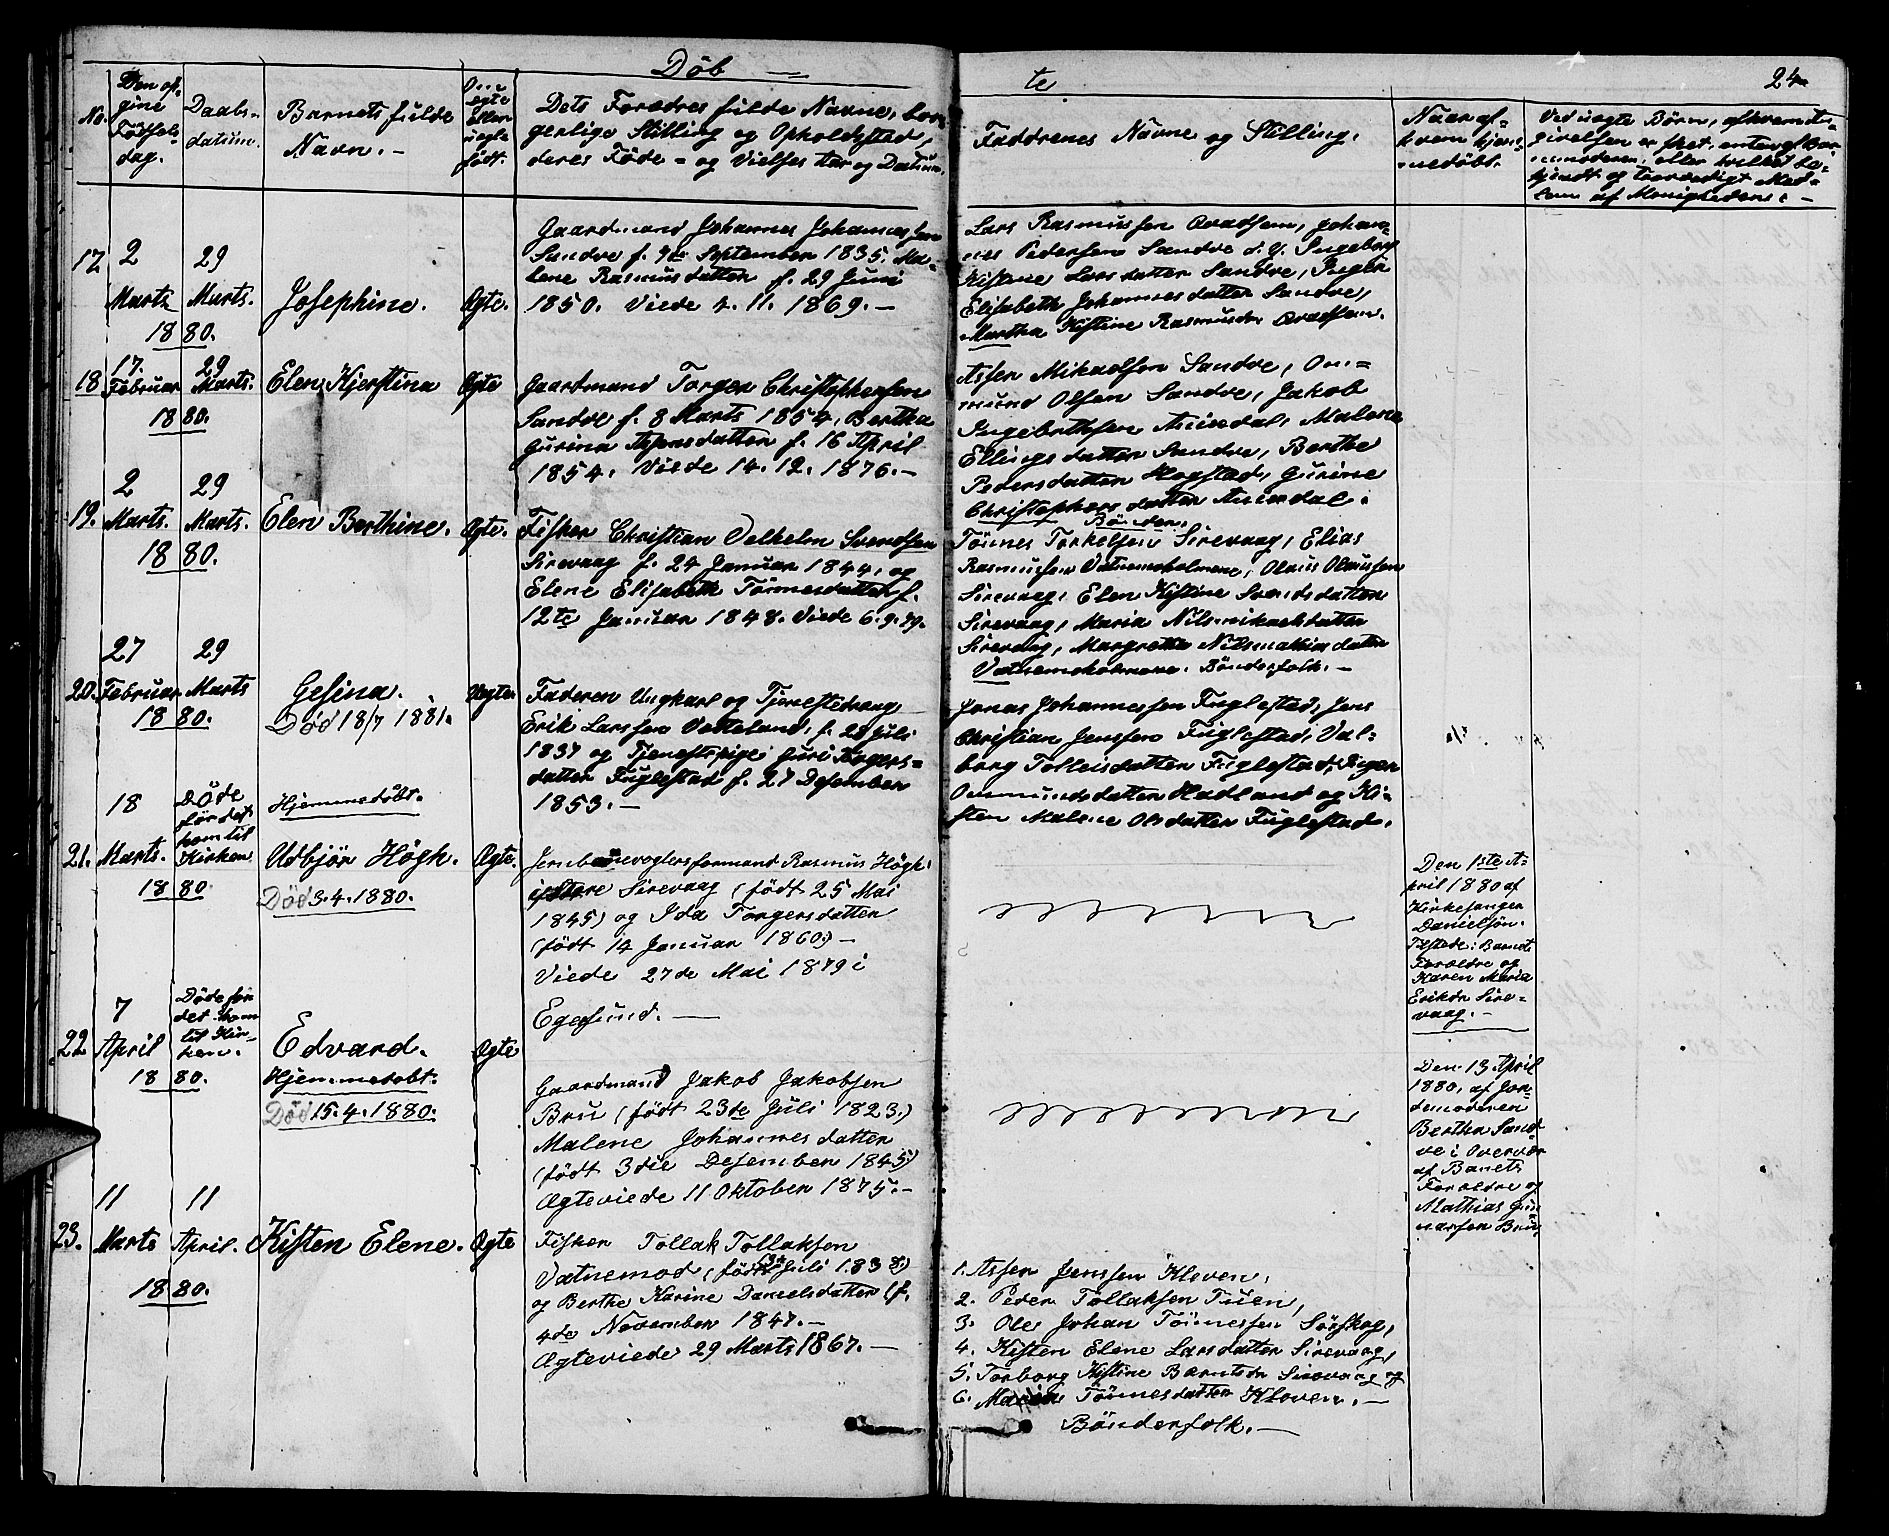 Döb — te
24
No.
Den op-
gine
Födsels-
dag.
Daabs-
datum.
Barnets fulde
Navn. -
egte
eller
uegte
født.
Dets Forældres fulde Navne, bor-
gerlige Stilling og Opholdssted,
deres Føde = og Vielses Aar og Datum.
Faddrenes Navne og Stilling.
Naar af
hvem hjem-
medøbt.
Ved uægte Børn, af hvem An-
givelsen er sket, enten af Bar-
nemoderen, eller hvilket be-
kjendt og troværdigt Med-
lem af Menigheden: -
17
2
Marts
29
Marts.
1880.
Josephine.
Ægte.
Gaardmand Johannes Johannessen
Sandve f. 9de September 1835. Ma-
lene Rasmusdatter f. 29 Juni
1850. Viede 4. 11. 1869. -
Lars Rasmussen Qvadsem, Johan-
nes Pedersen Sandve d. y. Ingeborg
Kistine Larsdatter Sandve, Inger
Elisabeth Johannesdatter Sandve,
Martha Kistine Rasmusdr Qvadsem.
18
17.
Februar
29
Marts.
1880.
Elen Kjerstina
Ægte
Gaardmand Torger Christophersen
Sandve f. 8 Marts 1854, Bertha
Gurina Asensdatter f. 16 April
1854. Viede 14. 12. 1876. -
Assen Mikaelsen Sandve, Om=
mund Olsen Sandve, Jakob
Ingebrethsen Auensdal, Malene
Ellingsdatter Sandve, Berthe
Pedersdatter Hogstad, Gurine
Christophersdatter Auensdal.
19.
2
Marts.
29
Marts.
1880.
Elen Berthine.
Ægte.
Fisker Christian Velhelm Svendsen
Sirevaag f. 24 Januar 1844, og
Elene Elisabeth Tönnesdatter f.
12te Januar 1848. Viede 6. 9. 79.
Bönder.
Tönnes Torkelsen Sirevaag, Elias
Rasmussen Vatnemsholmene, Olaus Olaussen
Sirevaag, Elen Kistine Svendsdatter
Sirevaag, Maria Nilsmikaelsdatter
Sirevaag, Margrethe Nilsmathiasdatter
Vatnemsholmene. Bönderfolk. -
20.
27
Februar
29
Marts
1880.
Gesina.
Död 18/7 1881.
Uegte
Faderen Ungkarl og Tjenestedreng
Erik Larssen Vetteland, f. 28 Juli
1837 og Tjenestepige Guri Torgers=
datter Fuglestad f. 27 Desember
1853. -
Jonas Johannessen Fuglestad, Jens
Christian Jenssen Fuglestad, Val-
borg Tolleisdatter Fuglestad, Inger
Ommundsdatter Hadland og Ki-
sten Malene Olsdatter Fuglestad.
21.
18
Marts.
1880.
Döde
för det
kom til
Kirken
Hjemmedöbt.
Udbjör Högh.
Död 3. 4. 1880.
Ægte.
Jernbanevogtersformand Rasmus Högh
Sirevaag (född 25 Mai
1845) og Ida Torgersdatter
(född 14 Januar 1860.) -
Viede 27de Mai 1879 i
Egersund. -
Den 1ste A-
pril 1880 af
Kirkesanger
Danielsön.
Tilstede: Barnets
Forældre og
Karen Maria
Eriksdr Sire-
vaag. -
22
7
April
1880.
Döde för
det kom
til Kir-
ken.
Edvard.
Hjemmedöbt.
Död 15. 4. 1880.
Ægte
Gaardmand Jakob Jakobsen
Bru (född 23de Juli 1823.)
Malene Johannesdatter
(född 3die Desember 1845)
Ægteviede 11 Oktober 1875. -
Den 13. April
1880, af Jor-
demoderen
Berthe Sand-
ve i Overvær
af Barnets
Forældre og
Mathias Gun-
narsen Bru.
23.
11
Marts
11
April.
1880.
Kisten Elene.
Ægte
Fisker Tollak Tollaksen
Vatnemod, (född Juli 1838.)
og Berthe Karine Danielsdatter (f.
4de November 1847. -
Ægteviede 29 Marts 1867. -
1. Assen Jenssen Kloven,
2. Peder Tollaksen Tuen,
3. Ole Johan Tönnessen Sörskog,
4. Kisten Elene Larsdatter Sirevaag,
5. Torborg Kistine Berntsdr Sirevaag og
6. Maria Tönnesdatter Kloven. -
Bönderfolk. -